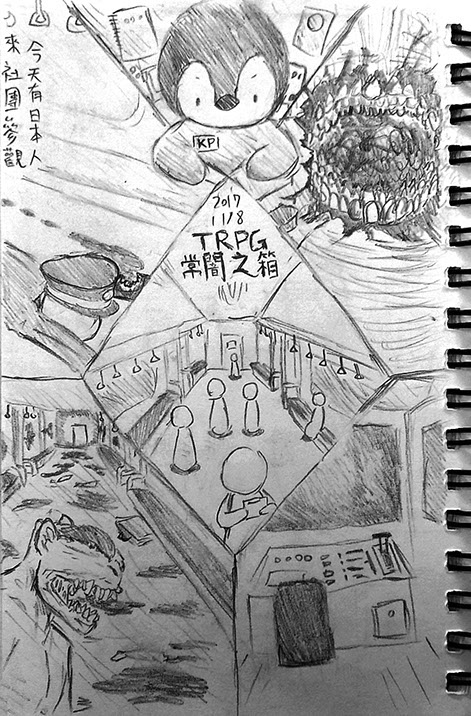 今天有日本人
來社團參觀
KP
2017
11/8
TRPG
常闇之箱